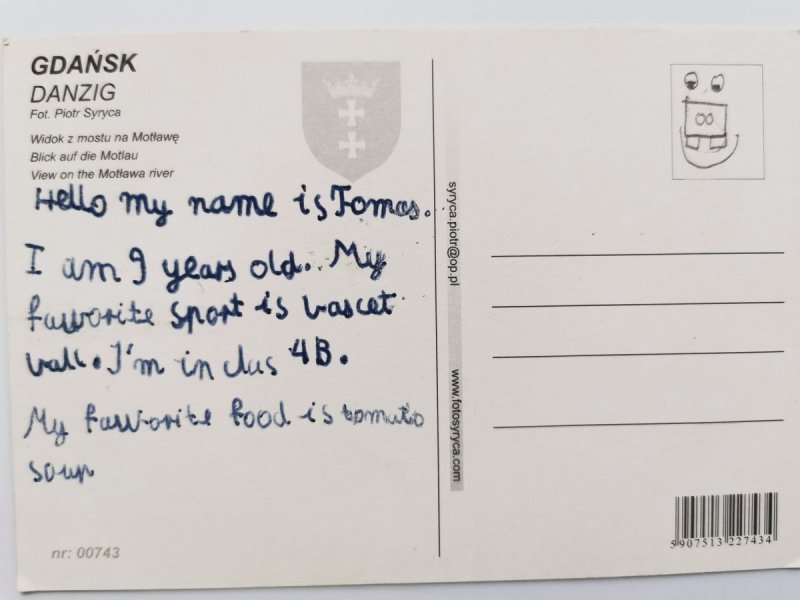 GDAŃSK
DANZIG
Fot. Piotr Syryca
Widok z mostu na Motławę
Blick auf die Motlau
View on the Motława river
Hello my name is Tomas.
I am 9 years old. My
fauvorite sport is bascet
ball. I'm in clas 4B.
My fauvorite food is tomato
soup
nr: 00743
syryca.piotr@op.pl
www.fotosyryca.com
5 907513 227434